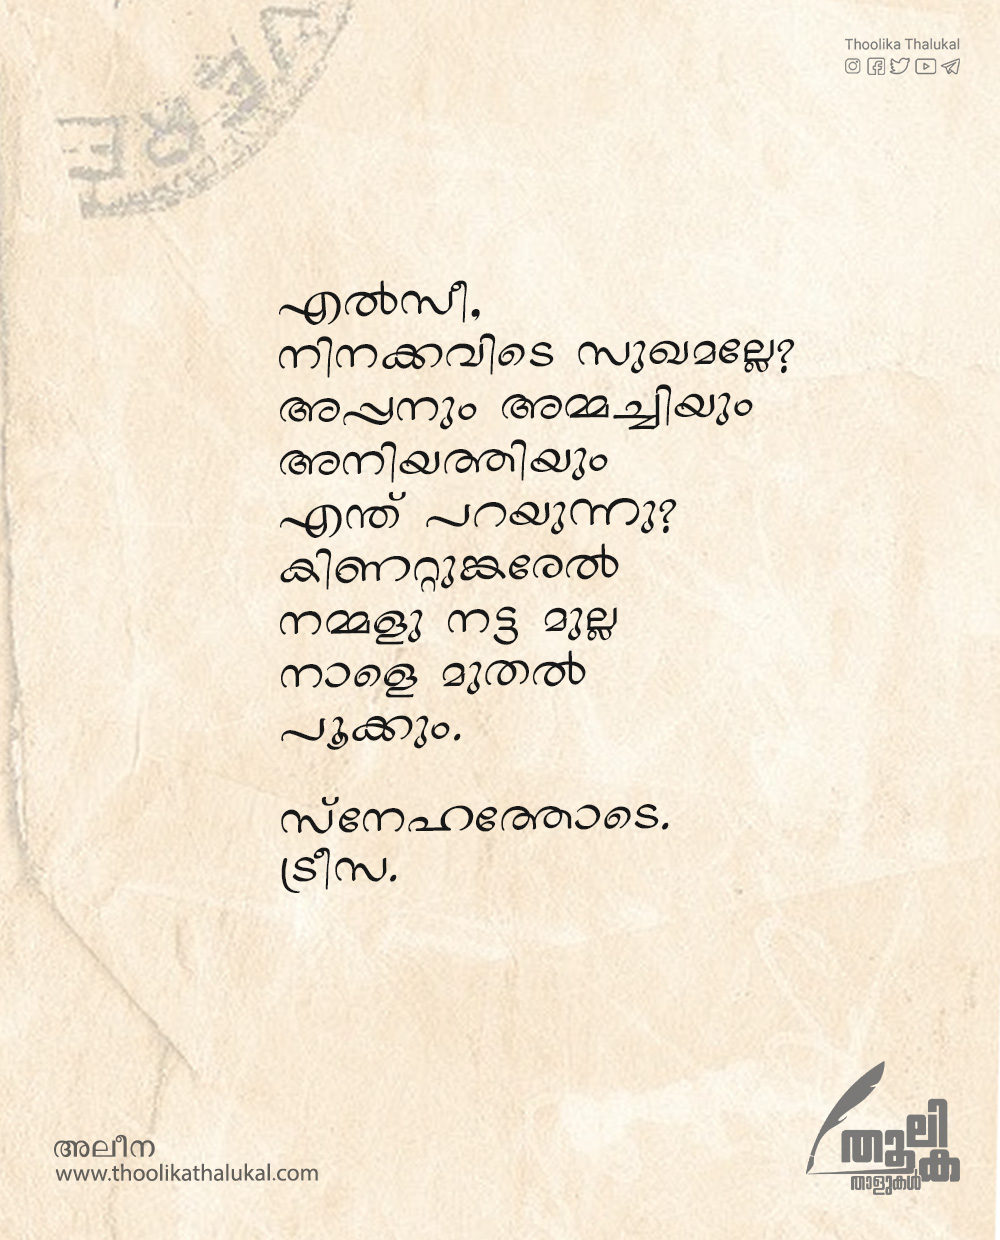 Thoolika Thalukal
എൽസീ,
നിനക്കവിടെ സുഖമല്ലേ?
അപ്പനും അമ്മച്ചിയും
അനിയത്തിയും
എന്ത് പറയുന്നു?
കിണറ്റുങ്കരേൽ
നമ്മളു നട്ട മുല്ല
നാളെ മുതൽ
പൂക്കും.
സ്നേഹത്തോടെ.
ട്രീസ.
അലീന
www.thoolikathalukal.com
തൂലിക
താളുകൾ